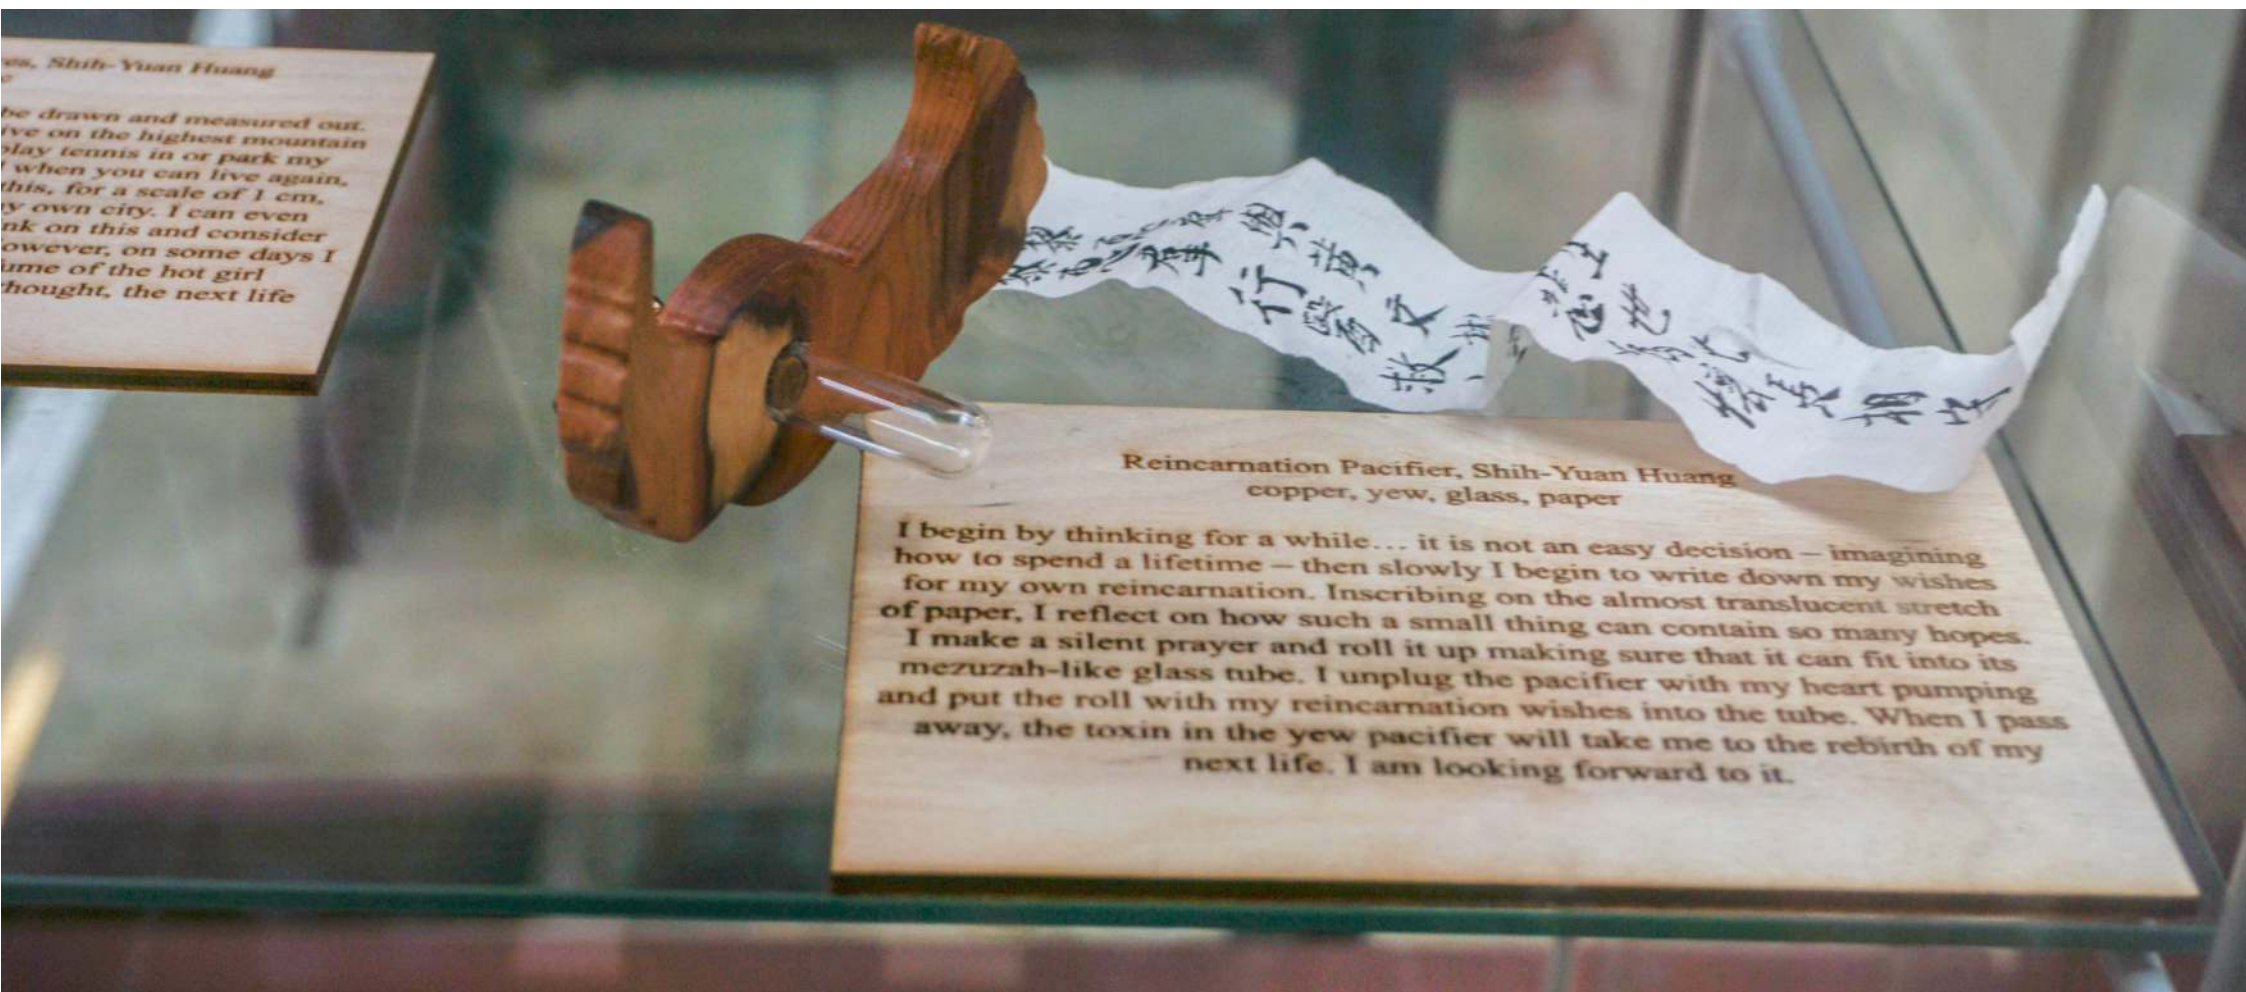 es, Shih-Yuan Huang
be drawn and measured out.
ive on the highest mountain
play tennis in or park my
when you can live again,
this, for a scale of 1 cm,
y own city. I can even
nk on this and consider
owever, on some days I
ume of the hot girl
thought, the next life
行 醫
救
Reincarnation Pacifier, Shih-Yuan Huang
copper, yew, glass, paper
I begin by thinking for a while... it is not an easy decision – imagining
how to spend a lifetime – then slowly I begin to write down my wishes
for my own reincarnation. Inscribing on the almost translucent stretch
of paper, I reflect on how such a small thing can contain so many hopes.
I make a silent prayer and roll it up making sure that it can fit into its
mezuzah-like glass tube. I unplug the pacifier with my heart pumping
and put the roll with my reincarnation wishes into the tube. When I pass
away, the toxin in the yew pacifier will take me to the rebirth of my
next life. I am looking forward to it.